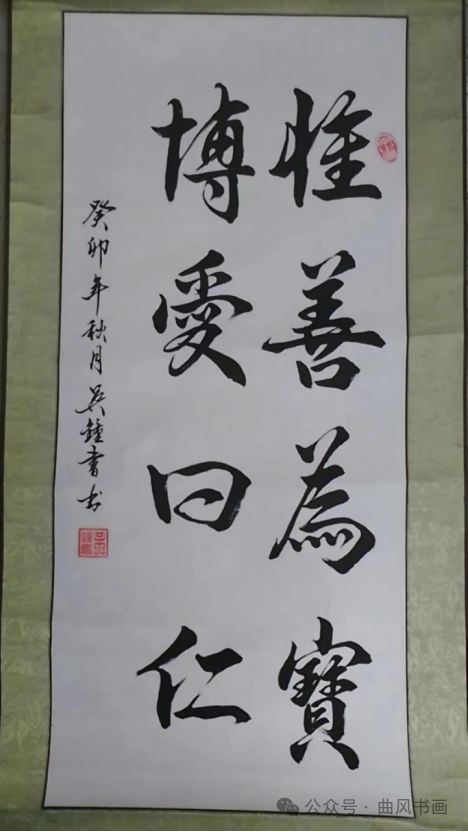 惟善為寶
博愛曰仁
癸卯年秋月吴鐘書书
公众号·曲风书画